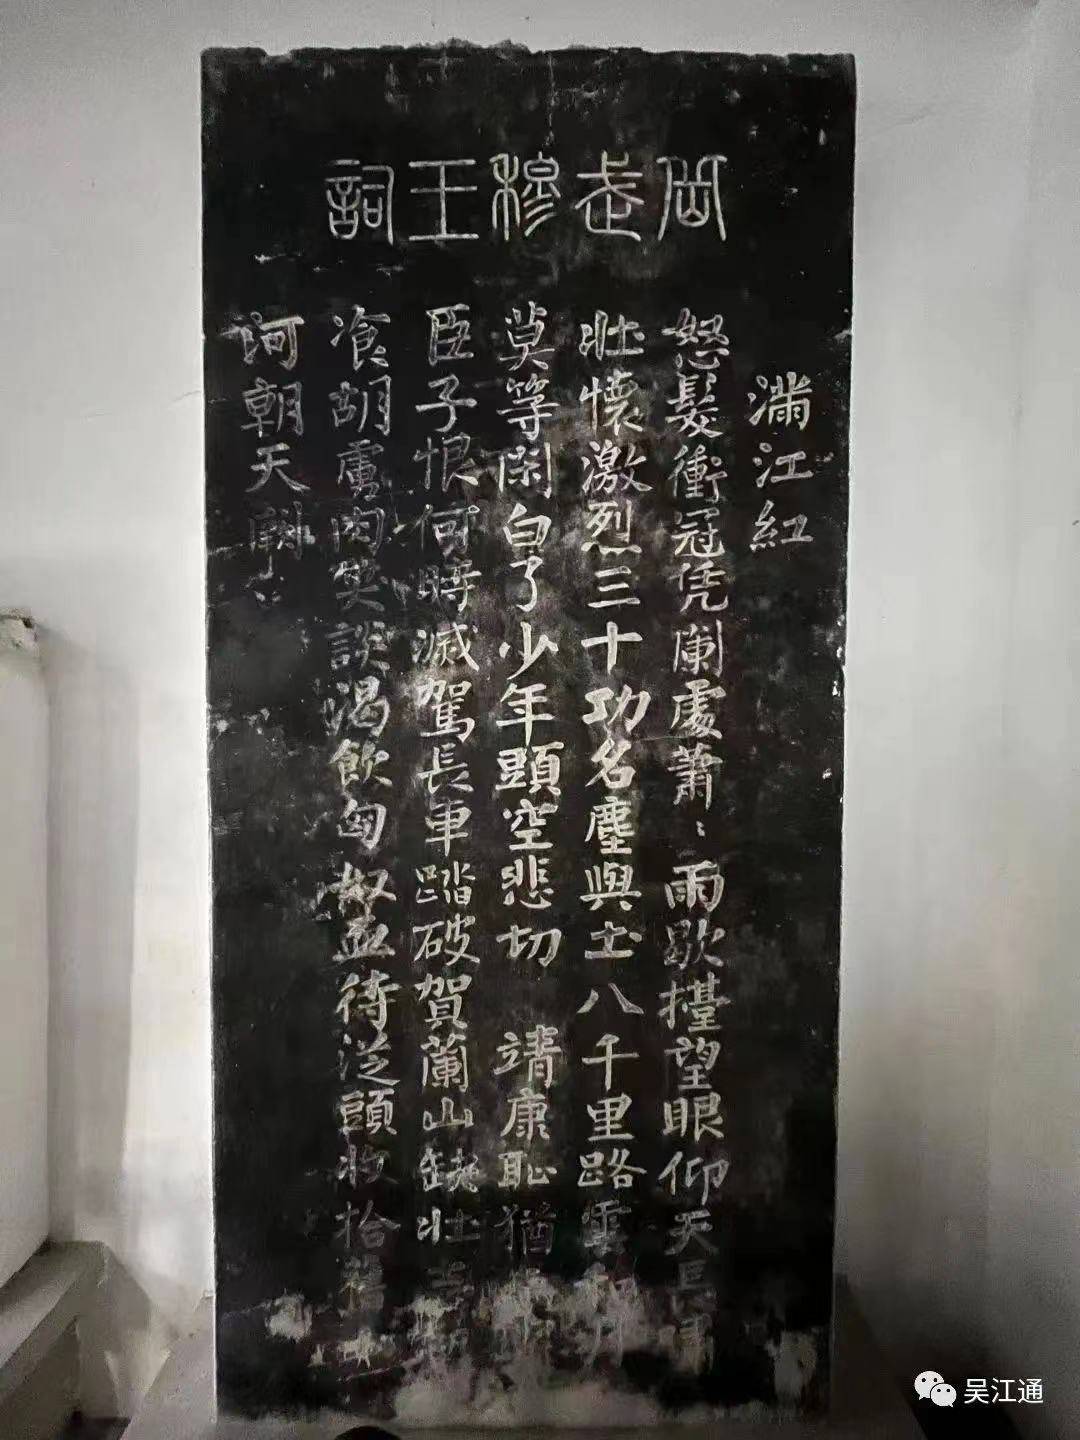 岳武穆王詞
滿江紅
怒髮衝冠凭闌處蕭〻雨歇擡望眼仰天長嘯
壯懷激烈三十功名塵與土八千里路雲和月
莫等閑白了少年頭空悲切 靖康恥猶
臣子恨何時滅駕長車踏破賀蘭山缺壯志
飡胡虜肉笑談渴飲匈奴血待從頭收拾舊山
河朝天闕
吴江通